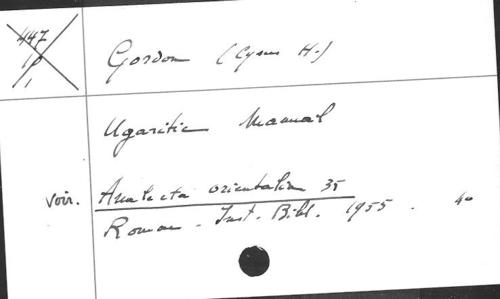 447
10
1
Gordon (Cyrus H.)
Ugaritic Manual
voir. Analecta orientalia 35
Romae. Inst. Bibl. 1955. 4o